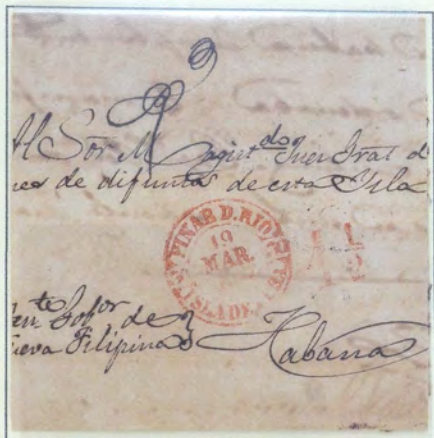 Al Sōr M agist.do Juez Gral d
nes de difuntos de esta Ysla
PINAR D. RIO
19
MAR.
ISLA DE
1
2
Ten.te Gobor de
ueva Filipina
Habana